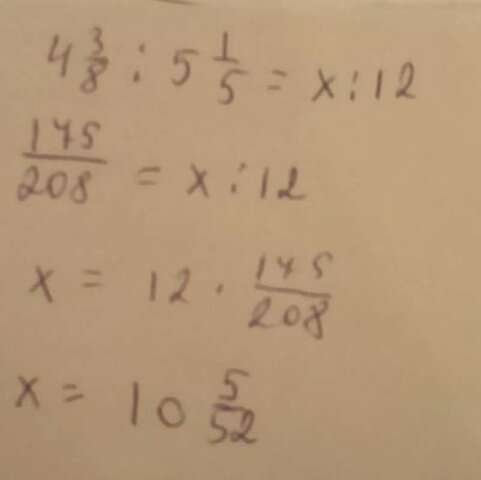 4 3/8 : 5 1/5 = x : 12
175/208 = x : 12
x = 12 · 175/208
x = 10 5/52